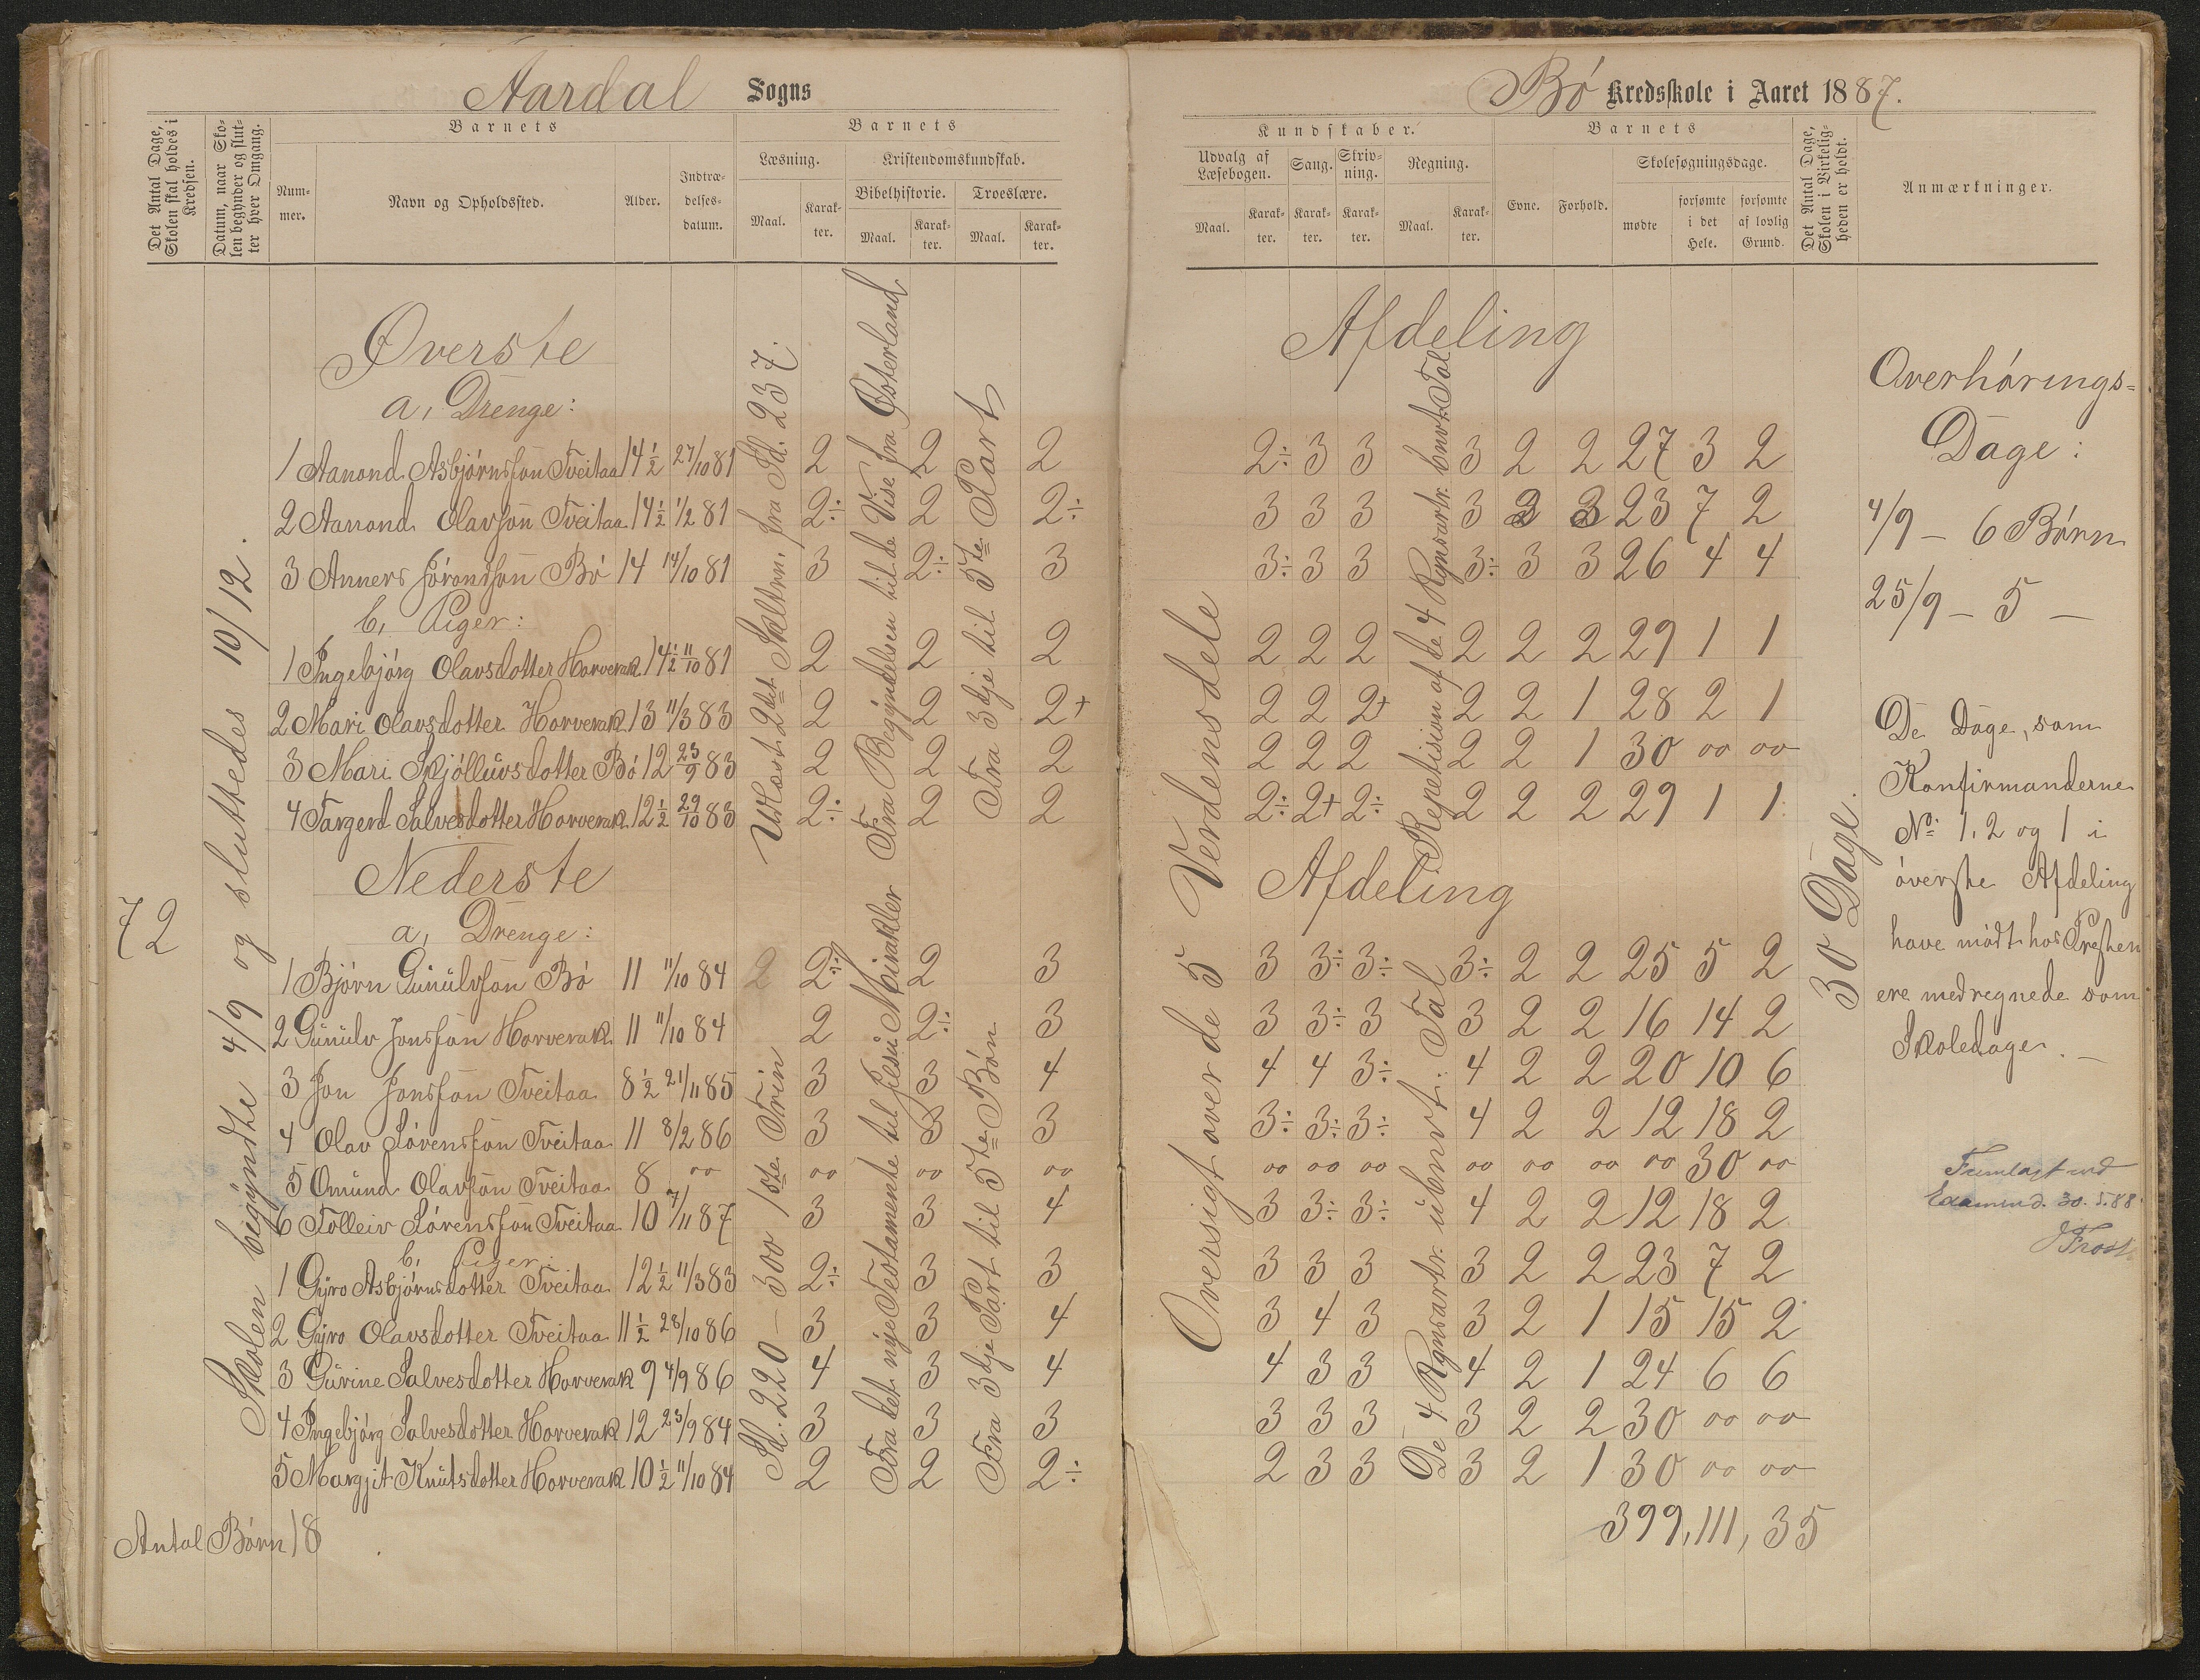 Aardal Sogns
Det Antal Dage, Skolen skal holdes i Kredsen.
Datum, naar Skolen begynder og slutter hver Omgang.
Barnets
Nummer.
Navn og Opholdssted.
Alder.
Indtrædelsesdatum.
Barnets
Læsning.
Maal.
Karakter.
Kristendomskundskab.
Bibelhistorie.
Maal.
Karakter.
Troeslære.
Maal.
Karakter.
72
Skolen begyndte 4/9 og sluttedes 10/12.
Øverste
a, Drenge:
1 Aanond Asbjørnssøn Tveitaa 14 1/2 27/10 81 2 2 2
2 Aanond Olavssøn Tveitaa 14 1/2 1/2 81 2÷ 2 2÷
3 Anners Jörondssøn Bö 14 14/10 81 3 2÷ 3
b, Piger:
1 Ingebjörg Olavsdotter Horverak 14 1/2 11/10 81 2 2 2
2 Mari Olavsdotter Horverak 13 11/3 83 2 2 2+
3 Mari Skjölluvsdotter Bö 12 23/9 83 2 2 2
4 Targerd Salvesdotter Horverak 12 1/2 29/10 83 2÷ 2 2
Utlæst 2det Skltrn. fra Sd. 237.
Fra Begyndelsen til de Vise fra Østerland
Fra 3dje til 5te Part
Nederste
a, Drenge:
1 Björn Gunulvssøn Bö 11 11/10 84 2 2÷ 2 3
2 Gunulv Jonssøn Horverak 11 11/10 84 2 2÷ 3
3 Jon Jonssøn Tveitaa 8 1/2 21/11 85 3 3 4
4 Olav Sörenssøn Tveitaa 11 8/2 86 3 3 3
5 Omund Olavssøn Tveitaa 8 oo oo oo oo
6 Tolleiv Sörenssøn Tveitaa 10 7/11 87 3 3 4
b, Piger
1 Gyro Asbjörnsdotter Tveitaa 12 1/2 11/3 83 2÷ 3 3
2 Gyro Olavsdotter Tveitaa 11 1/2 28/10 86 3 3 4
3 Gurine Salvesdotter Horverak 9 4/9 86 4 3 4
4 Ingebjörg Salvesdotter Horverak 12 23/9 84 3 3 3
5 Margjit Knutsdotter Horverak 10 1/2 11/10 84 2 2 2÷
Sd. 220 – 300 1ste Trin
Fra det nye Testamente til Jesu Mirakler
Fra 3dje Part til 5te Bön
Antal Börn 18
Bö Kredsskole i Aaret 1887.
Kundskaber.
Udvalg af Læsebogen.
Maal.
Karakter.
Sang.
Karakter.
Skrivning.
Karakter.
Regning.
Maal.
Karakter.
Barnets
Evne.
Forhold.
Skolesøgningsdage.
mødte
forsømte i det Hele.
forsømte af lovlig Grund.
Det Antal Dage, Skolen i Virkeligheden er holdt.
Anmærkninger.
Afdeling
2÷ 3 3 3 2 2 27 3 2
3 3 3 3 3 3 23 7 2
3÷ 3 3 3÷ 3 3 26 4 4
2 2 2 2 2 2 29 1 1
2 2 2+ 2 2 1 28 2 1
2 2 2 2 2 1 30 oo oo
2÷ 2+ 2÷ 2 2 2 29 1 1
Oversigt over de 5 Verdensdele
Repetision af de 4 Rgnsartr. bnvt. Tal
Afdeling
3 3÷ 3÷ 3÷ 2 2 25 5 2
3 3÷ 3 3 2 2 16 14 2
4 4 3÷ 4 2 2 20 10 6
3÷ 3÷ 3÷ 4 2 2 12 18 2
oo oo oo oo oo oo oo 30 oo
3 3÷ 3÷ 4 2 2 12 18 2
3 3 3 3 2 2 23 7 2
3 4 3 3 2 1 15 15 2
4 3 3 4 2 1 24 6 6
3 3 3 3 2 2 30 oo oo
2 3 3 3 2 1 30 oo oo
De 4 Rgnsartr. ubnvt. Tal
399, 111, 35
30 Dage.
Overhørings-
Dage:
4/9 – 6 Børn
25/9 – 5 –
De Dage, som
Konfirmanderne
No 1, 2 og 1 i
överste Afdeling
have mödt hos Presten
ere medregnede som
Skoledage. –
Fremlagt ved
Examen d. 30.5.88
J Frost